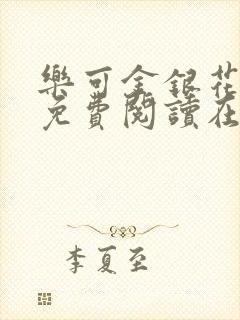 樂可金銀花
免費閱讀在
李夏至